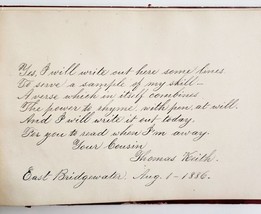 Yes, I will write out here some lines
To serve a sample of my skill—
A verse which in itself combines
The power to rhyme, with pen, at will.
And I will write it out today.
For you to read when I'm away.
Your Cousin
Thomas Keith.
East Bridgewater. Aug. 1 – 1886.